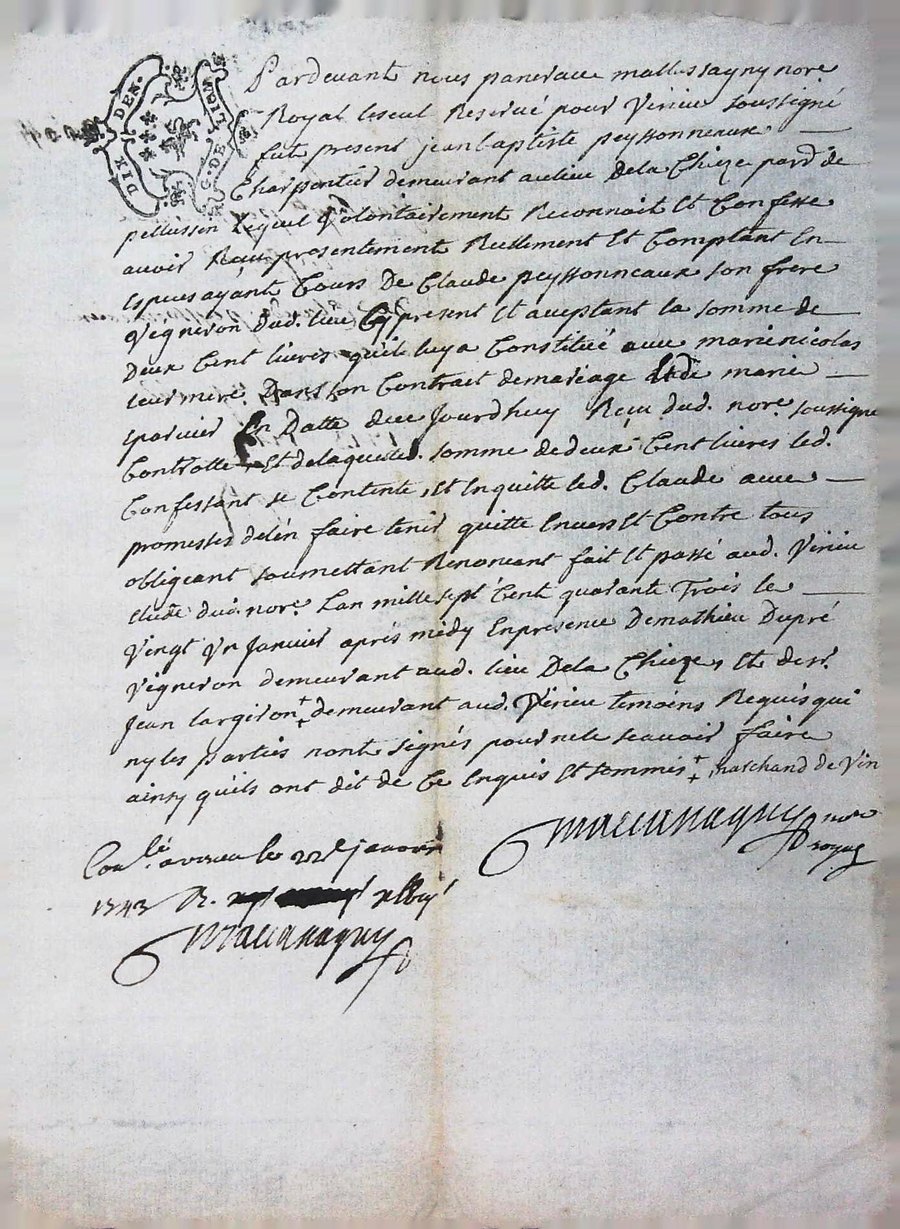 DIX DEN.
G. DE LION
Pardevant nous panerace mallessagny nore
Royal leseul Reservé pour Virieu soussigné
fut present jean baptiste peyssonneaux
Charpentier demeurant aulieu Dela Chieze parr.e de
pellussin Lequel Volontairement Reconnait Et Confesse
auoir Reçu presentement Reellement Et Comptant En
Especes ayant Cours De Claude peyssonneaux son frere
Vigneron dud. lieu Cy present Et aceptant la somme de
Deux Cent liures quil luy a Constitué auec marie nicolas
leur mere Dans son Contrait demariage Et de marie
Eparuier En Datte de ce Jourdhuy Reçu dud. nore. soussigné
Controlle Et delaquelle somme de deux Cent liures led.
Confessant se Contente, Et Enquitte led. Claude auec
promesses delen faire tenir quitte Enuers Et Contre tous
obligeant soumettant Renoncant fait Et passé aud. Virieu
Etude dud. nore Lan mille sept Cent quarante Trois le
Vingt Vn Januier aprés midy Enpresence Demathieu Dupré
Vigneron demeurant aud. lieu Dela Chieze, Et de sr.
Jean largiron ‡ demeurant aud. Virieu temoins Requis qui
ny les parties nont signés pour ne le scauoir faire
ainsy quils ont dit de Ce Enquis Et sommés ‡ marchand de Vin
nore
royal
Con.lé a virieu le 22e janvier
1743 R.